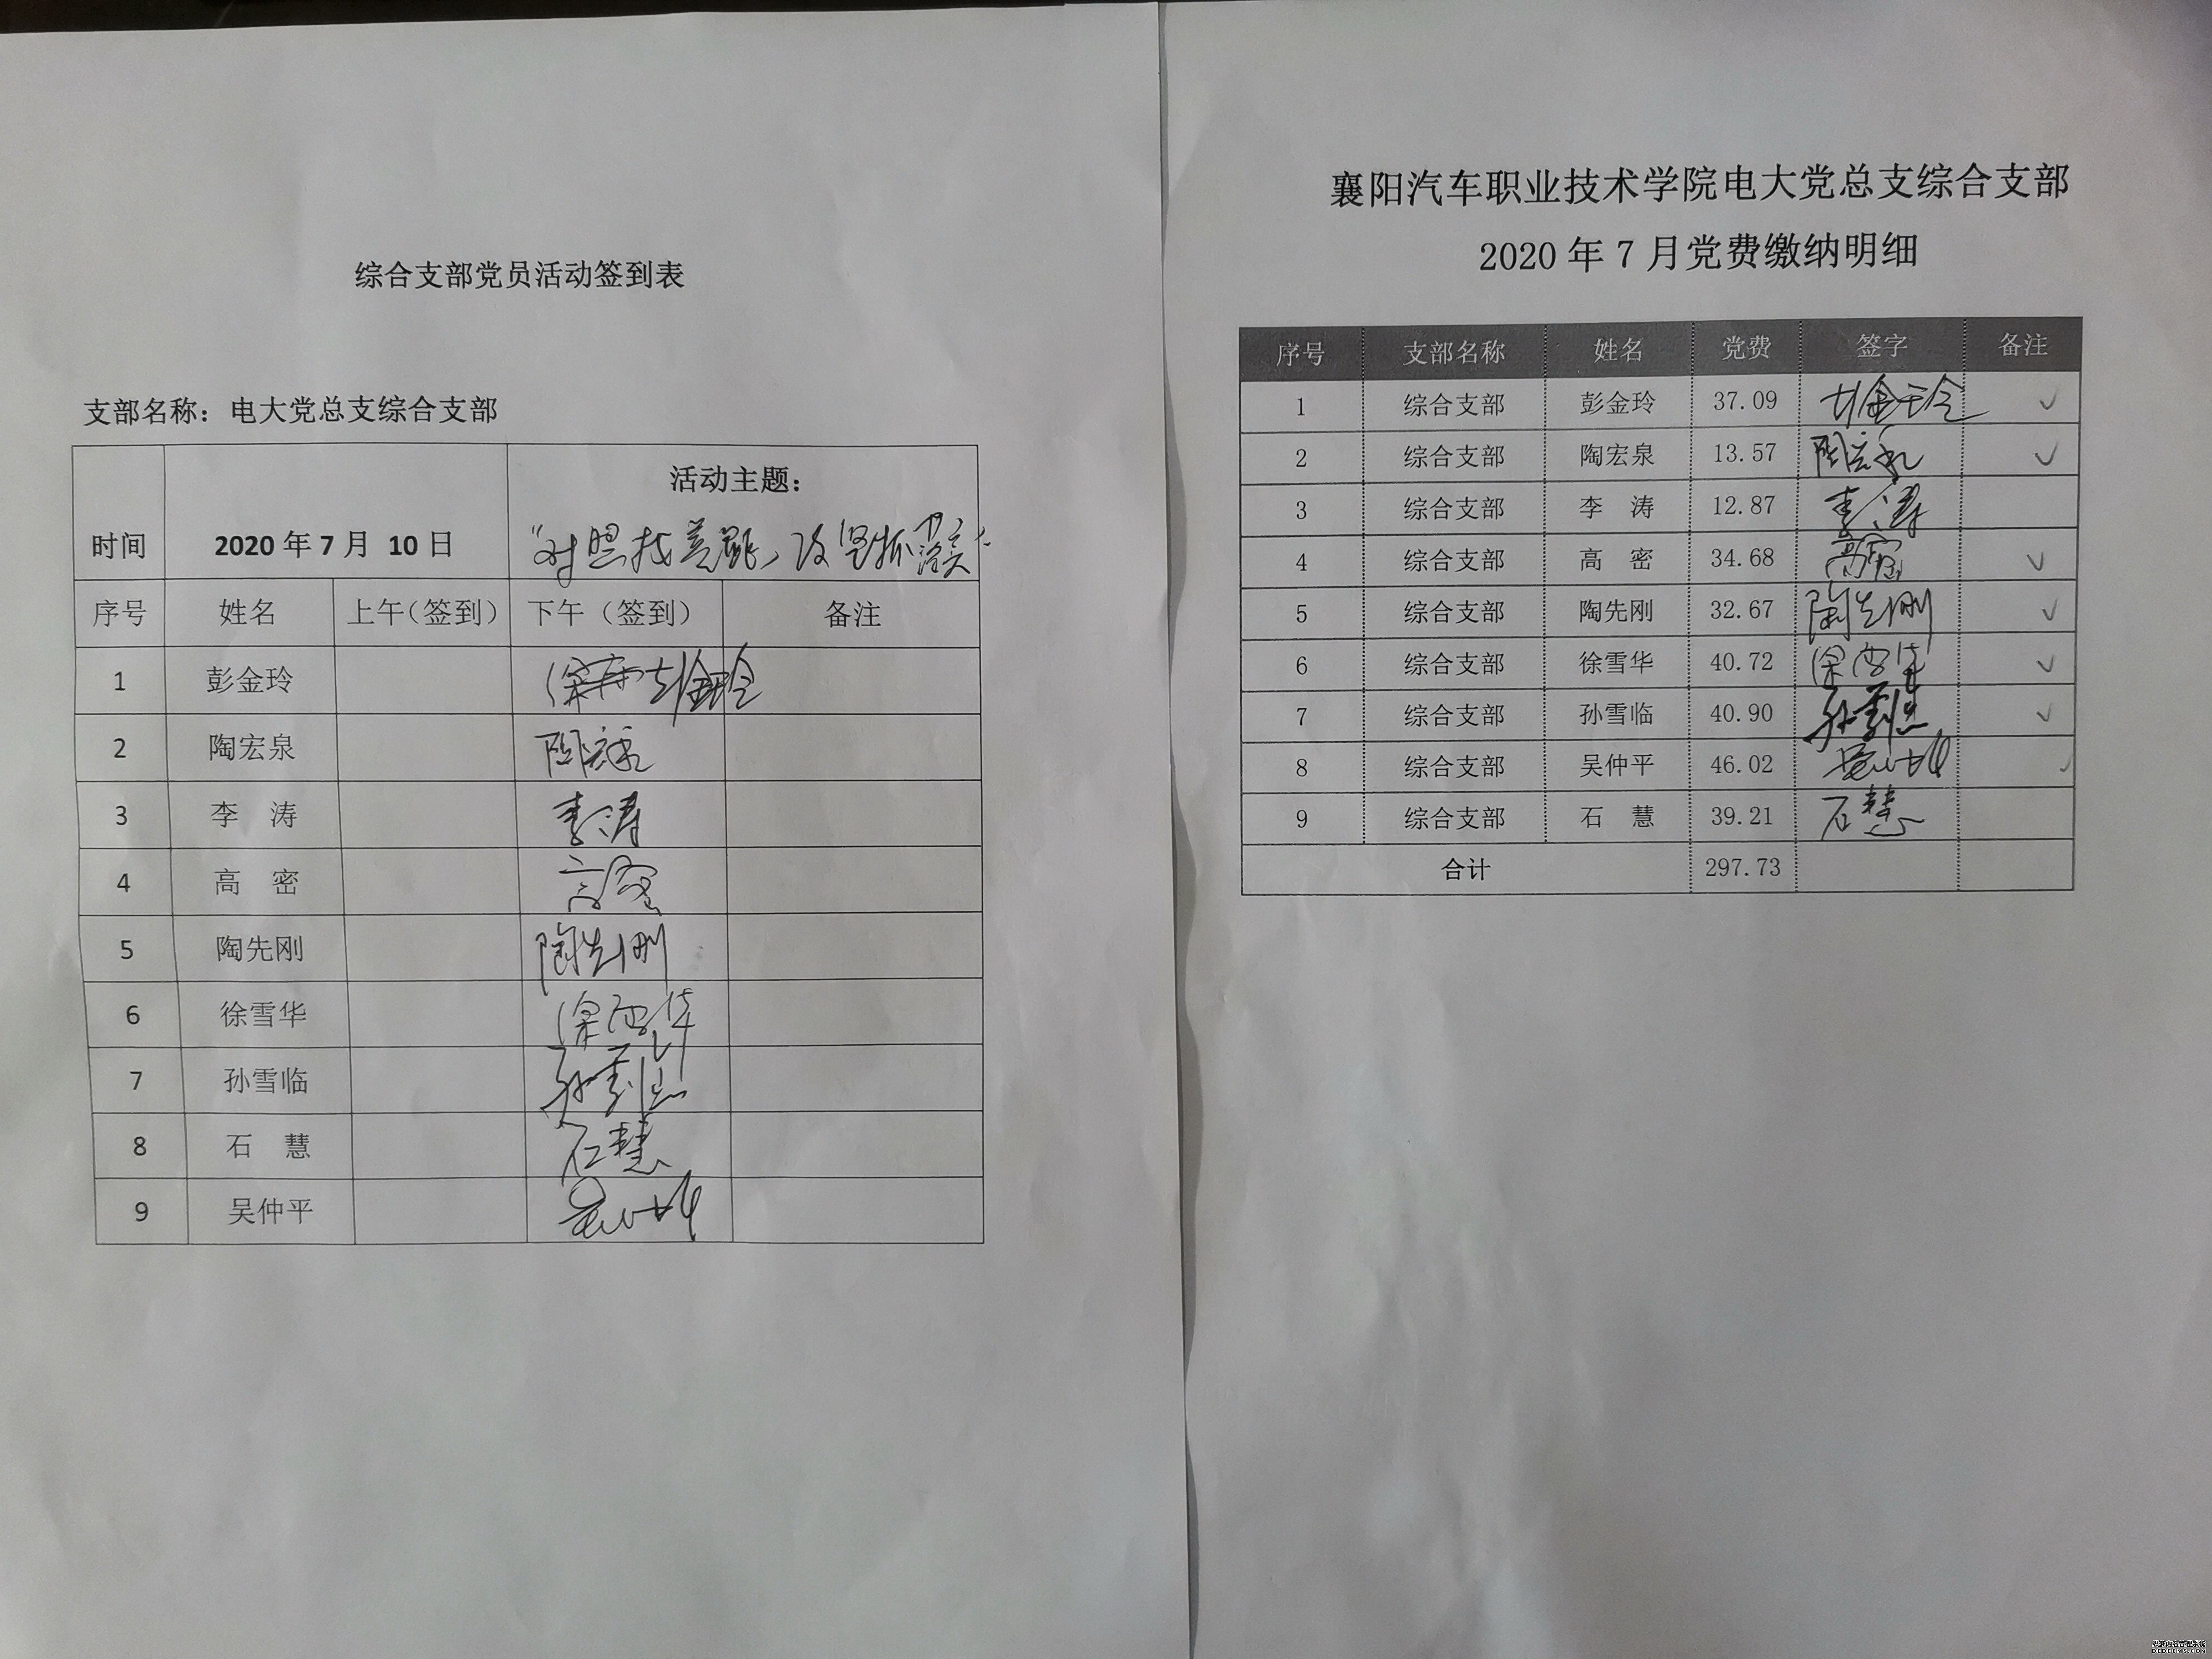 综合支部党员活动签到表
支部名称：电大党总支综合支部
时间 2020年7月 10日 活动主题：
"对照找差距，攻坚抓落实"
序号 姓名 上午(签到) 下午（签到） 备注
1 彭金玲 彭金玲
2 陶宏泉 陶宏泉
3 李 涛 李涛
4 高 密 高密
5 陶先刚 陶先刚
6 徐雪华 徐雪华
7 孙雪临 孙雪临
8 石 慧 石慧
9 吴仲平 吴仲平
襄阳汽车职业技术学院电大党总支综合支部
2020年7月党费缴纳明细
序号 支部名称 姓名 党费 签字 备注
1 综合支部 彭金玲 37.09 彭金玲 ✓
2 综合支部 陶宏泉 13.57 陶宏泉 ✓
3 综合支部 李 涛 12.87 李涛
4 综合支部 高 密 34.68 高密 ✓
5 综合支部 陶先刚 32.67 陶先刚 ✓
6 综合支部 徐雪华 40.72 徐雪华 ✓
7 综合支部 孙雪临 40.90 孙雪临 ✓
8 综合支部 吴仲平 46.02 吴仲平 ✓
9 综合支部 石 慧 39.21 石慧
合计 297.73
织梦内容管理系统
DEDECMS.COM